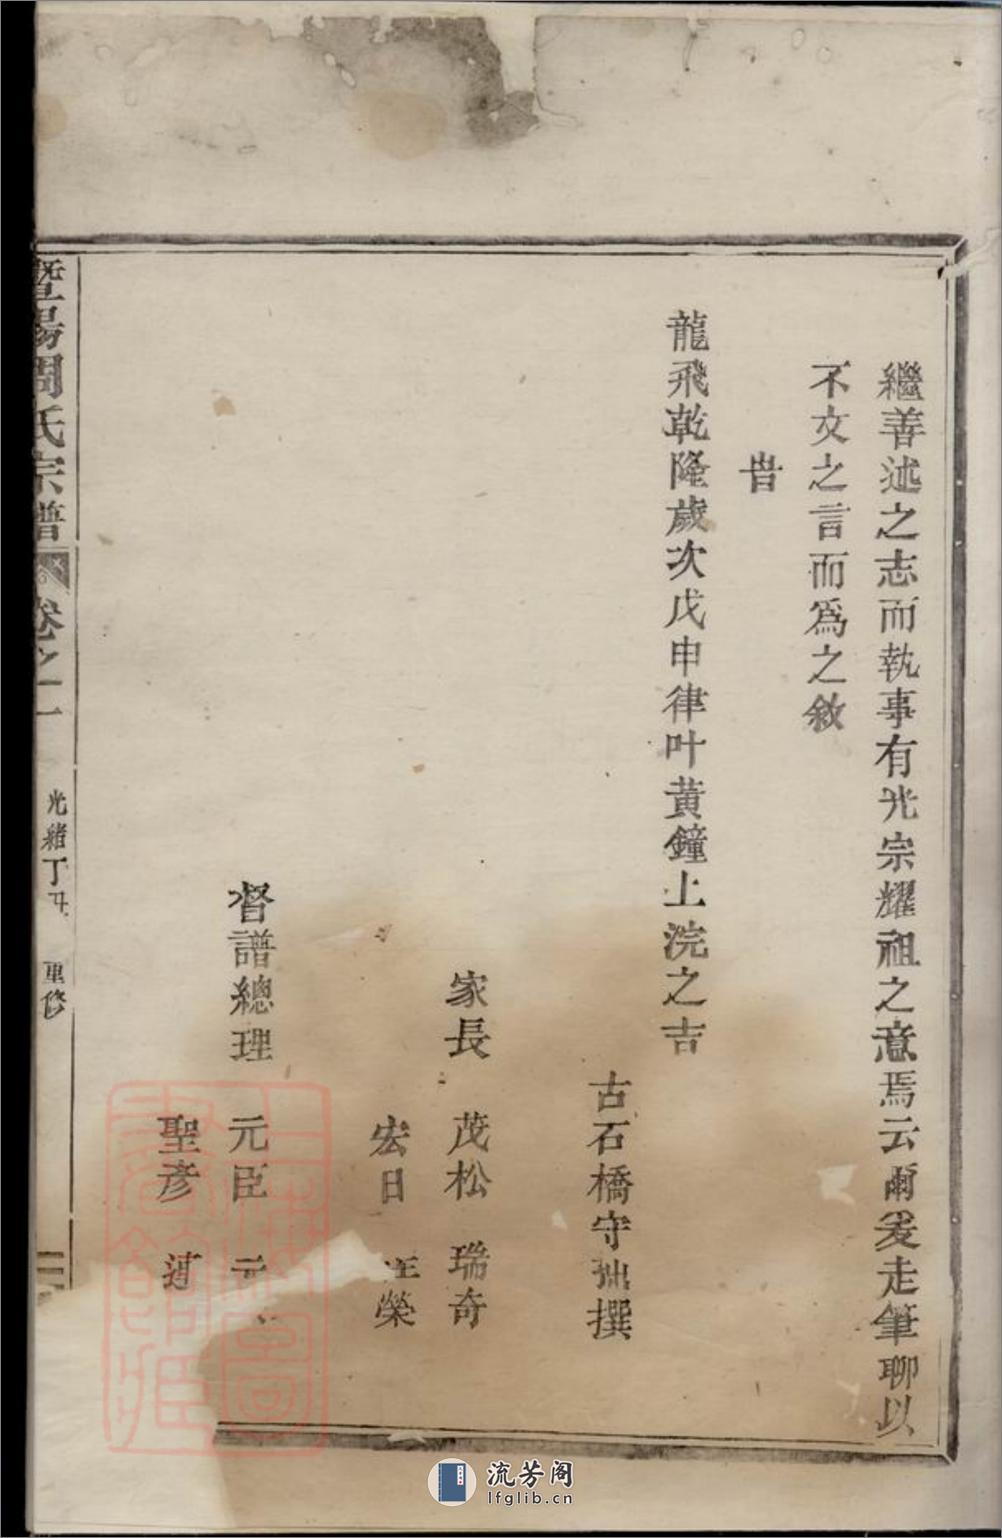 繼善述之志而執事有光宗耀祖之意焉云爾爰走筆聊以
不文之言而爲之敘
旹
龍飛乾隆歲次戊申律叶黄鐘上浣之吉
古石橋守拙撰
家長 茂松 瑞奇
宏日 榮
督譜總理 元臣 元
聖彦
暨陽周氏宗譜 卷之一 光緒丁丑 重修
流芳阁
lfglib.cn